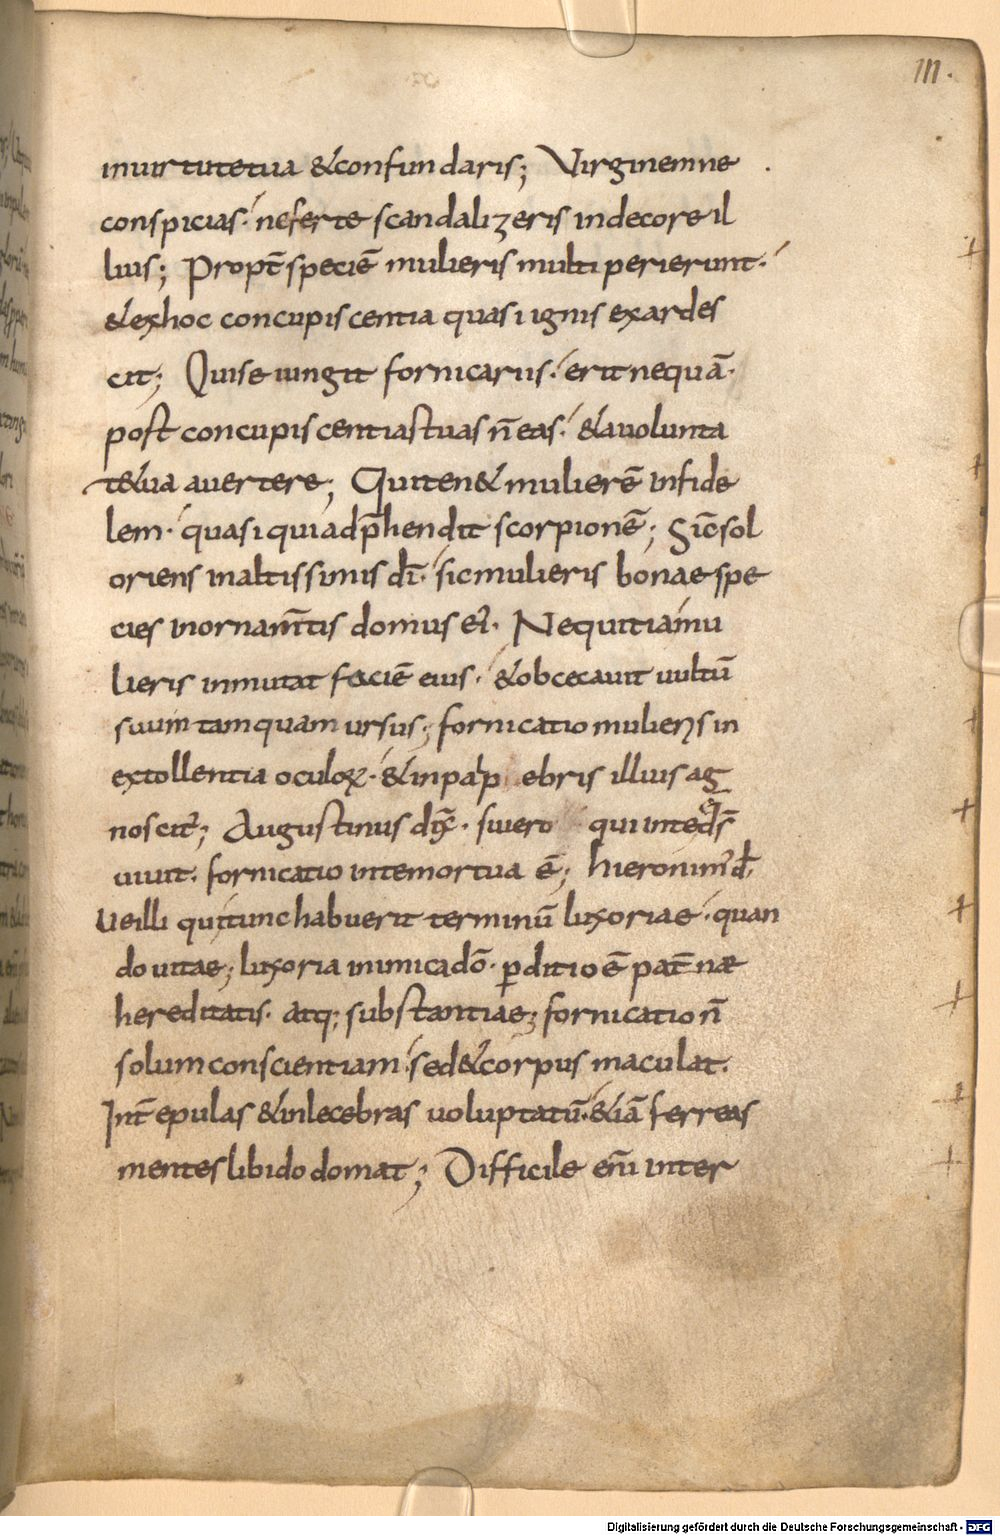 111.
inuirtutetua &confundaris; Virginemne
conspicias· neferte scandalizeris indecore il
lius; Propt̄ speciē mulieris multi perierunt·
&exhoc concupiscentia quasi ignis exardes
cit; Quise iungit fornicariis· erit nequā·
post concupiscentiastuas n̄ eas· &auolunta
t&ua auertere; Quiten& mulierē infide
lem· quasi quiadp̄hendit scorpionē; Sic̄ sol
oriens inaltissimis dī· sicmulieris bonae spe
cies inornam̄tis domus ei᾿· Nequitiamu
lieris inmutat faciē eius· &obcecauit uultū
suum tamquam ursus; fornicatio mulieris in
extollentia oculoꝝ· &inpalp ebris illius ag
noscit᾿; Augustinus dix̄· siuero qui inteds̄
uiuit· fornicatio intemortua ē; hieronim᾿ d̄·
Ueilli quitunc habuerit terminū luxoriae· quan
do uitae; luxoria inimicadō· ꝑditio ē pat̄nae
hereditatis· atq; substantiae; fornicatio n̄
solum conscientiam· sed&corpus maculat·
Int̄ epulas &inlecebras uoluptatū· &iā ferreas
mentes libido domat; Difficile enī inter
Digitalisierung gefördert durch die Deutsche Forschungsgemeinschaft - DFG